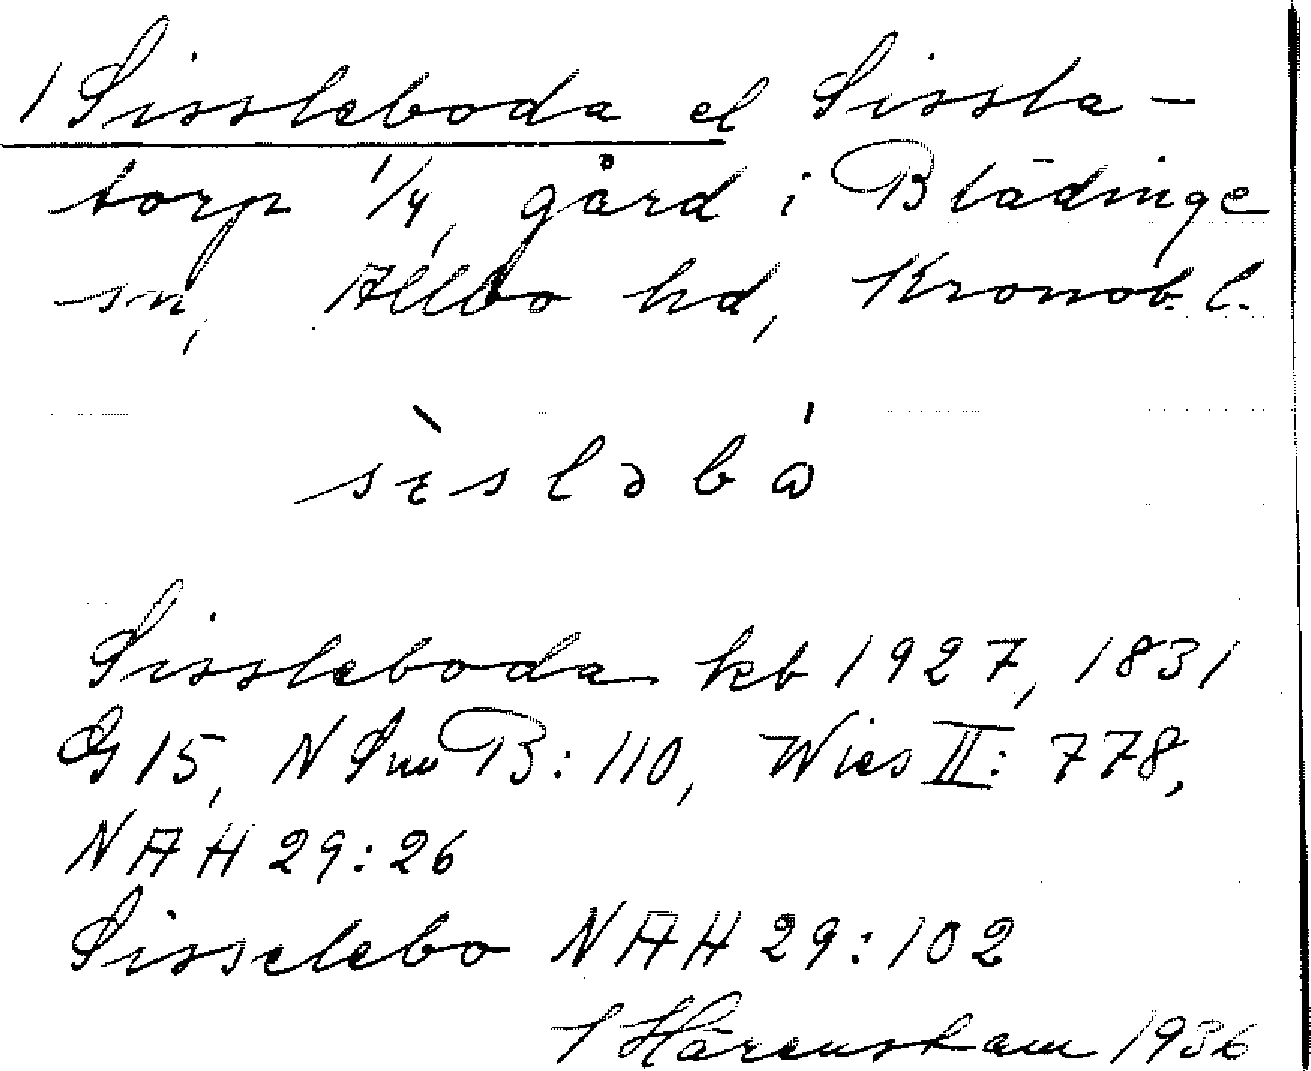 1 Sissleboda el Sissle-
torp 1/4, gård i Blädinge
sn, Allbo hd, Kronob. l.
sìsləbɷ́
Sissleboda kb 1927, 1831
G 15, N Smo B: 110, Wies II: 778,
NAH 29:26
Sisselebo NAH 29:102
Härenstam 1936